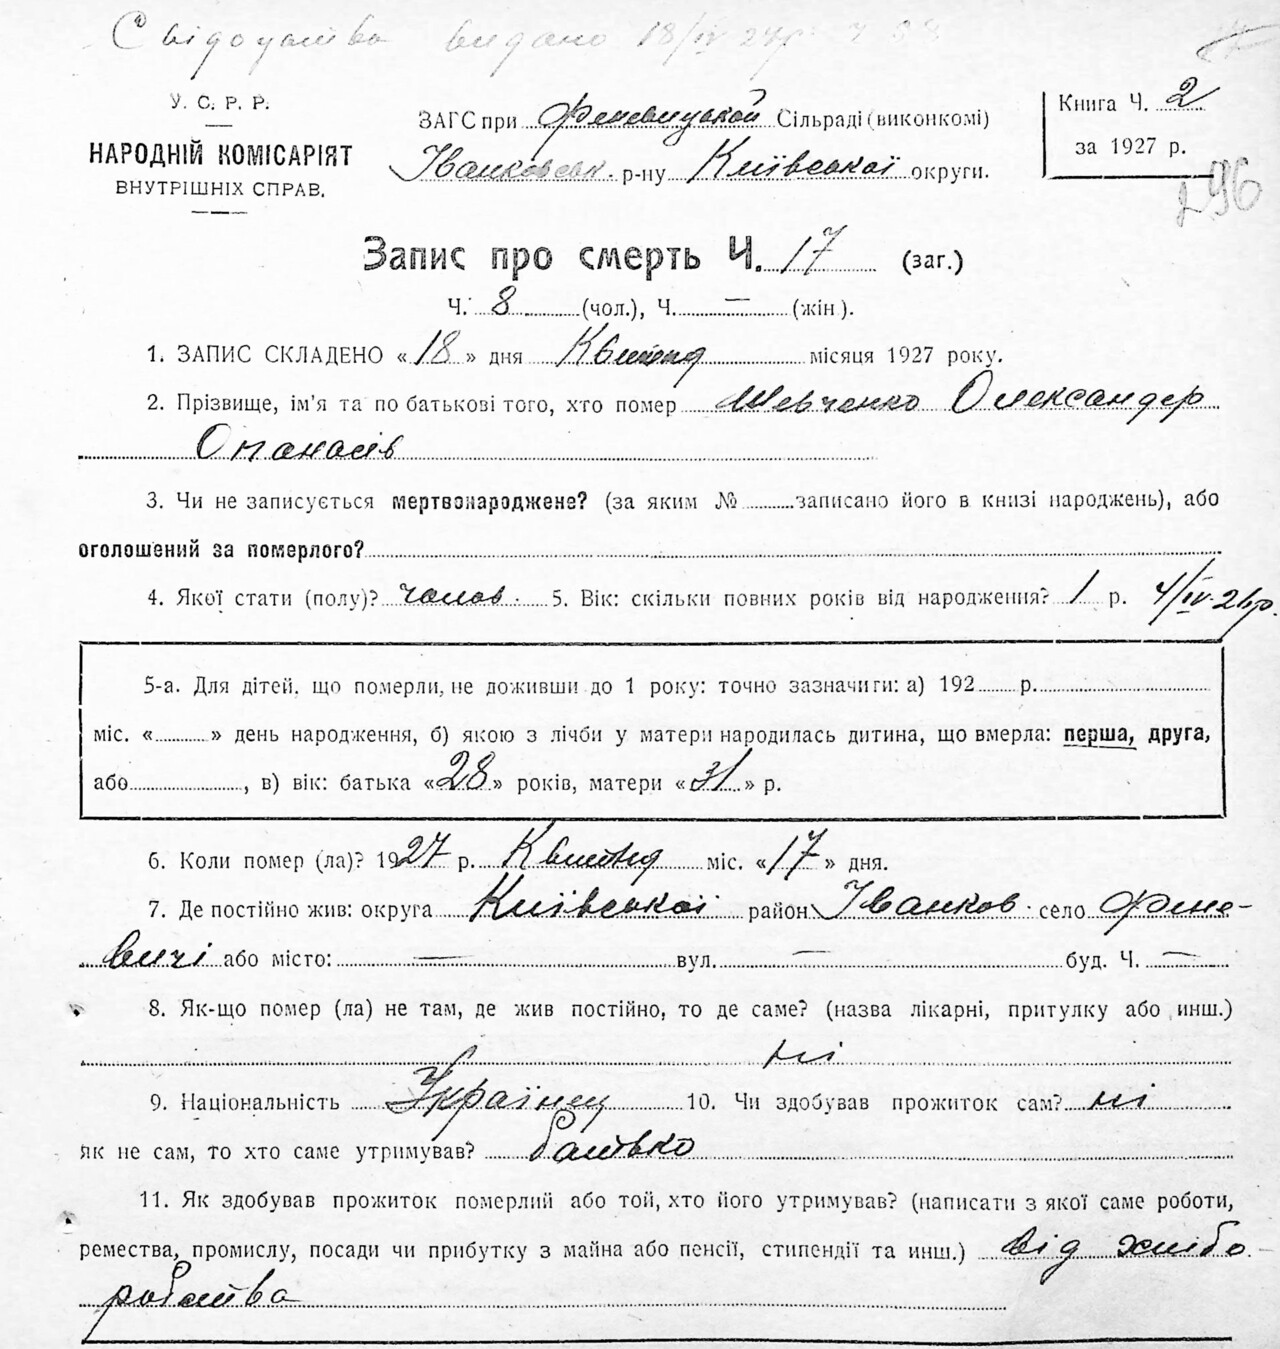 Свідоцтво видано 18/IV 27р.
У. С. Р. Р.
НАРОДНІЙ КОМІСАРІЯТ
ВНУТРІШНІХ СПРАВ.
ЗАГС при Феневицькой Сільраді (виконкомі)
Іванковськ. р-ну Київської округи.
Книга Ч. 2
за 1927 р.
296
Запис про смерть Ч. 17 (заг.)
Ч. 8 (чол.), Ч. — (жін).
1. ЗАПИС СКЛАДЕНО «18» дня Квітня місяця 1927 року.
2. Прізвище, ім'я та по батькові того, хто помер Шевченко Олександер
Опанасів
3. Чи не записується мертвонароджене? (за яким № записано його в книзі народжень), або
оголошений за померлого?
4. Якої стати (полу)? чолов. 5. Вік: скільки повних років від народження? 1 р. 4/IV-26р.
5-а. Для дітей, що померли, не доживши до 1 року: точно зазначити: а) 192 р.
міс. « » день народження, б) якою з лічби у матери народилась дитина, що вмерла: перша, друга,
або , в) вік: батька «28» років, матери «31» р.
6. Коли помер (ла)? 1927 р. Квітня міс. «17» дня.
7. Де постійно жив: округа Київської район Іванков. село Фене-
вичі або місто: — вул. — буд. Ч. —
8. Як-що помер (ла) не там, де жив постійно, то де саме? (назва лікарні, притулку або инш.)
ні
9. Національність Українец 10. Чи здобував прожиток сам? ні
Як не сам, то хто саме утримував? батько
11. Як здобував прожиток померлий або той, хто його утримував? (написати з якої саме роботи,
ремества, промислу, посади чи прибутку з майна або пенсії, стипендії та инш.) від хлібо-
робства